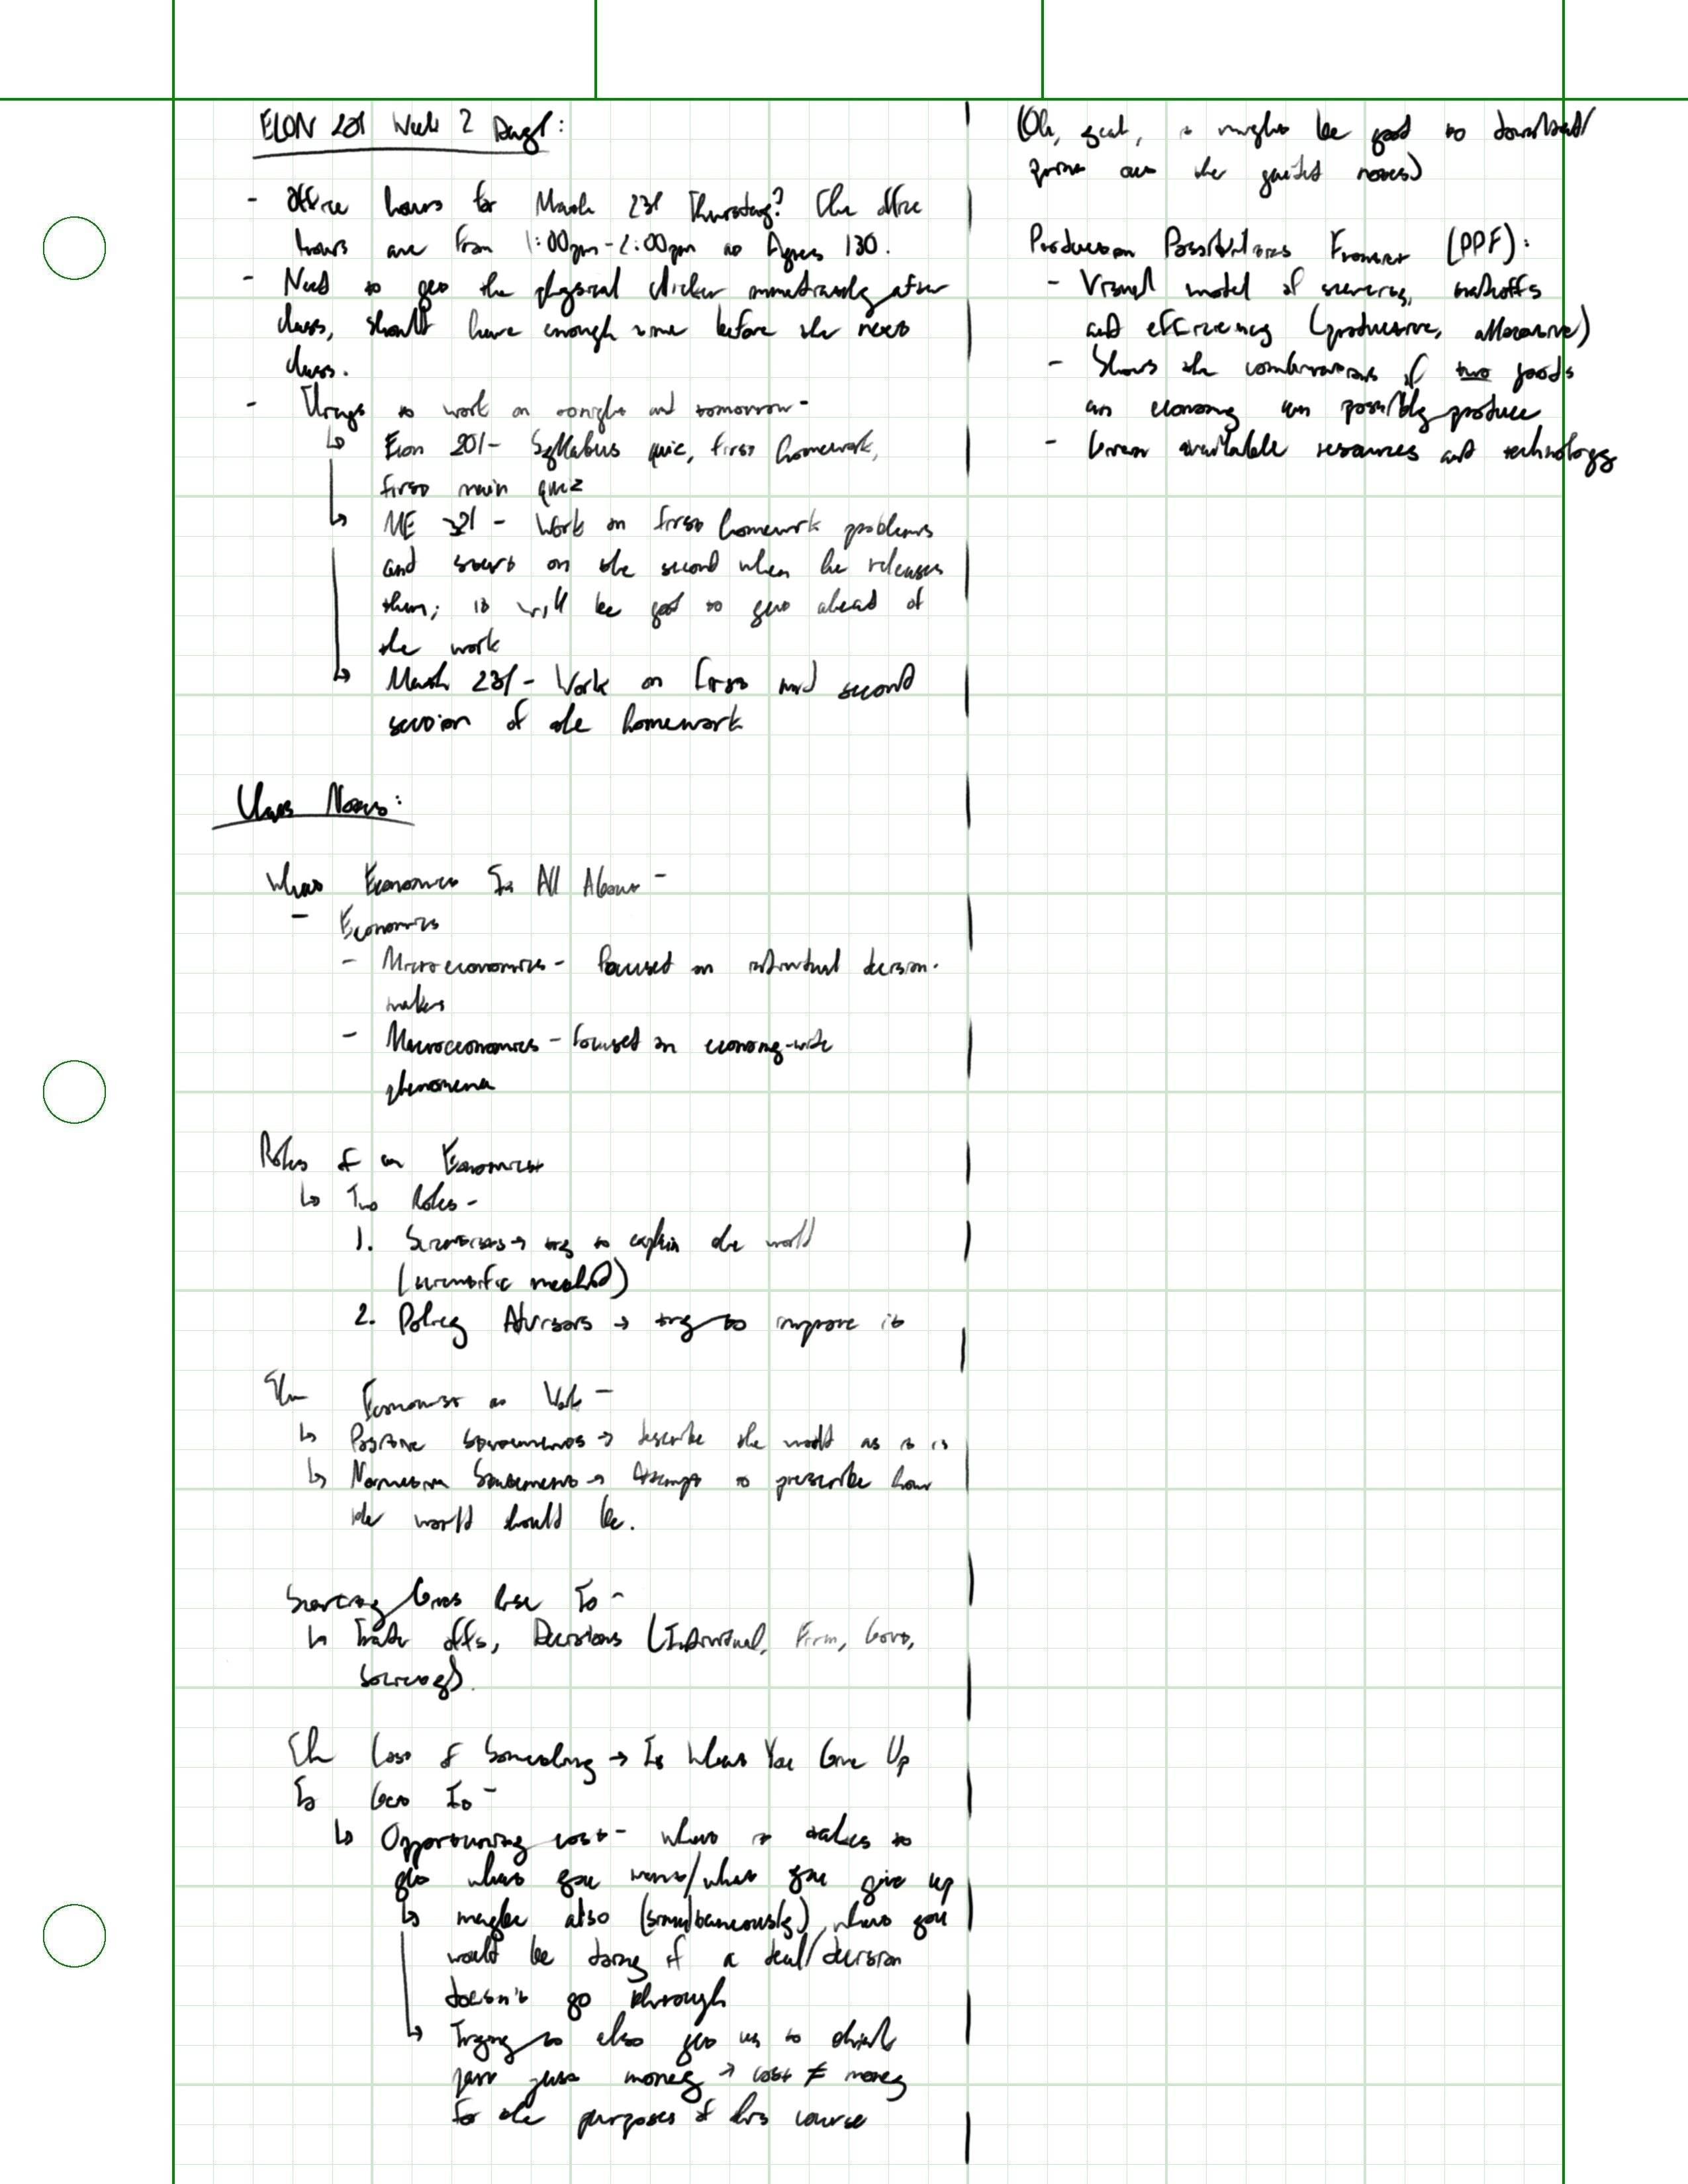 ECON 201 Week 2 Day 1:
- Office hours for Math 231 Thursday? The office
hours are from 1:00pm-2:00pm at Agnes 130.
- Need to get the physical clicker immediately after
class, should have enough time before the next
class.
- Things to work on tonight and tomorrow-
↳ Econ 201- Syllabus quiz, first homework,
first main quiz
↳ ME 321 - Work on first homework problems
and start on the second when he releases
them; it will be good to get ahead of
the work
↳ Math 231- Work on first and second
section of the homework
Class Notes:
What Economics Is All About -
- Economics
- Microeconomics - focused on individual decision-
makers
- Macroeconomics - focused on economy-wide
phenomena
Roles of an Economist
↳ Two Roles -
1. Scientists → try to explain the world
(scientific method)
2. Policy Advisors → try to improve it
The Economist at Work -
↳ Positive Statements → describe the world as it is
↳ Normative Statements → Attempt to prescribe how
the world should be.
Scarcity Gives Rise To -
↳ Trade offs, Decisions (Individual, Firm, Govt,
Society).
The Cost of Something → Is What You Give Up
To Get It -
↳ Opportunity cost - what it takes to
get what you want/what you give up
↳ maybe also (simultaneously), what you
would be doing if a deal/decision
doesn't go through
↳ Trying to also get us to think
past just money → cost ≠ money
for the purposes of this course
(Ok, it might be good to download/
print out the guided notes)
Production Possibilities Frontier (PPF):
- Visual model of scarcity, tradeoffs
and efficiency (productive, allocative)
- Shows the combinations of two goods
an economy can possibly produce
- Given available resources and technology